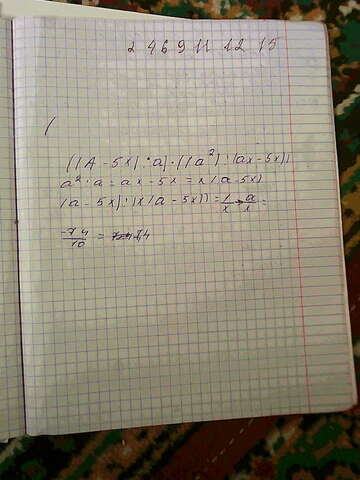 2 4 6 9 11 12 15
((A - 5x) : a) · ((a²) : (ax - 5x))
a² : a = ax - 5x = x(a - 5x)
(a - 5x) : (x(a - 5x)) = 1/x → a/x =
-74/10 = 7,4